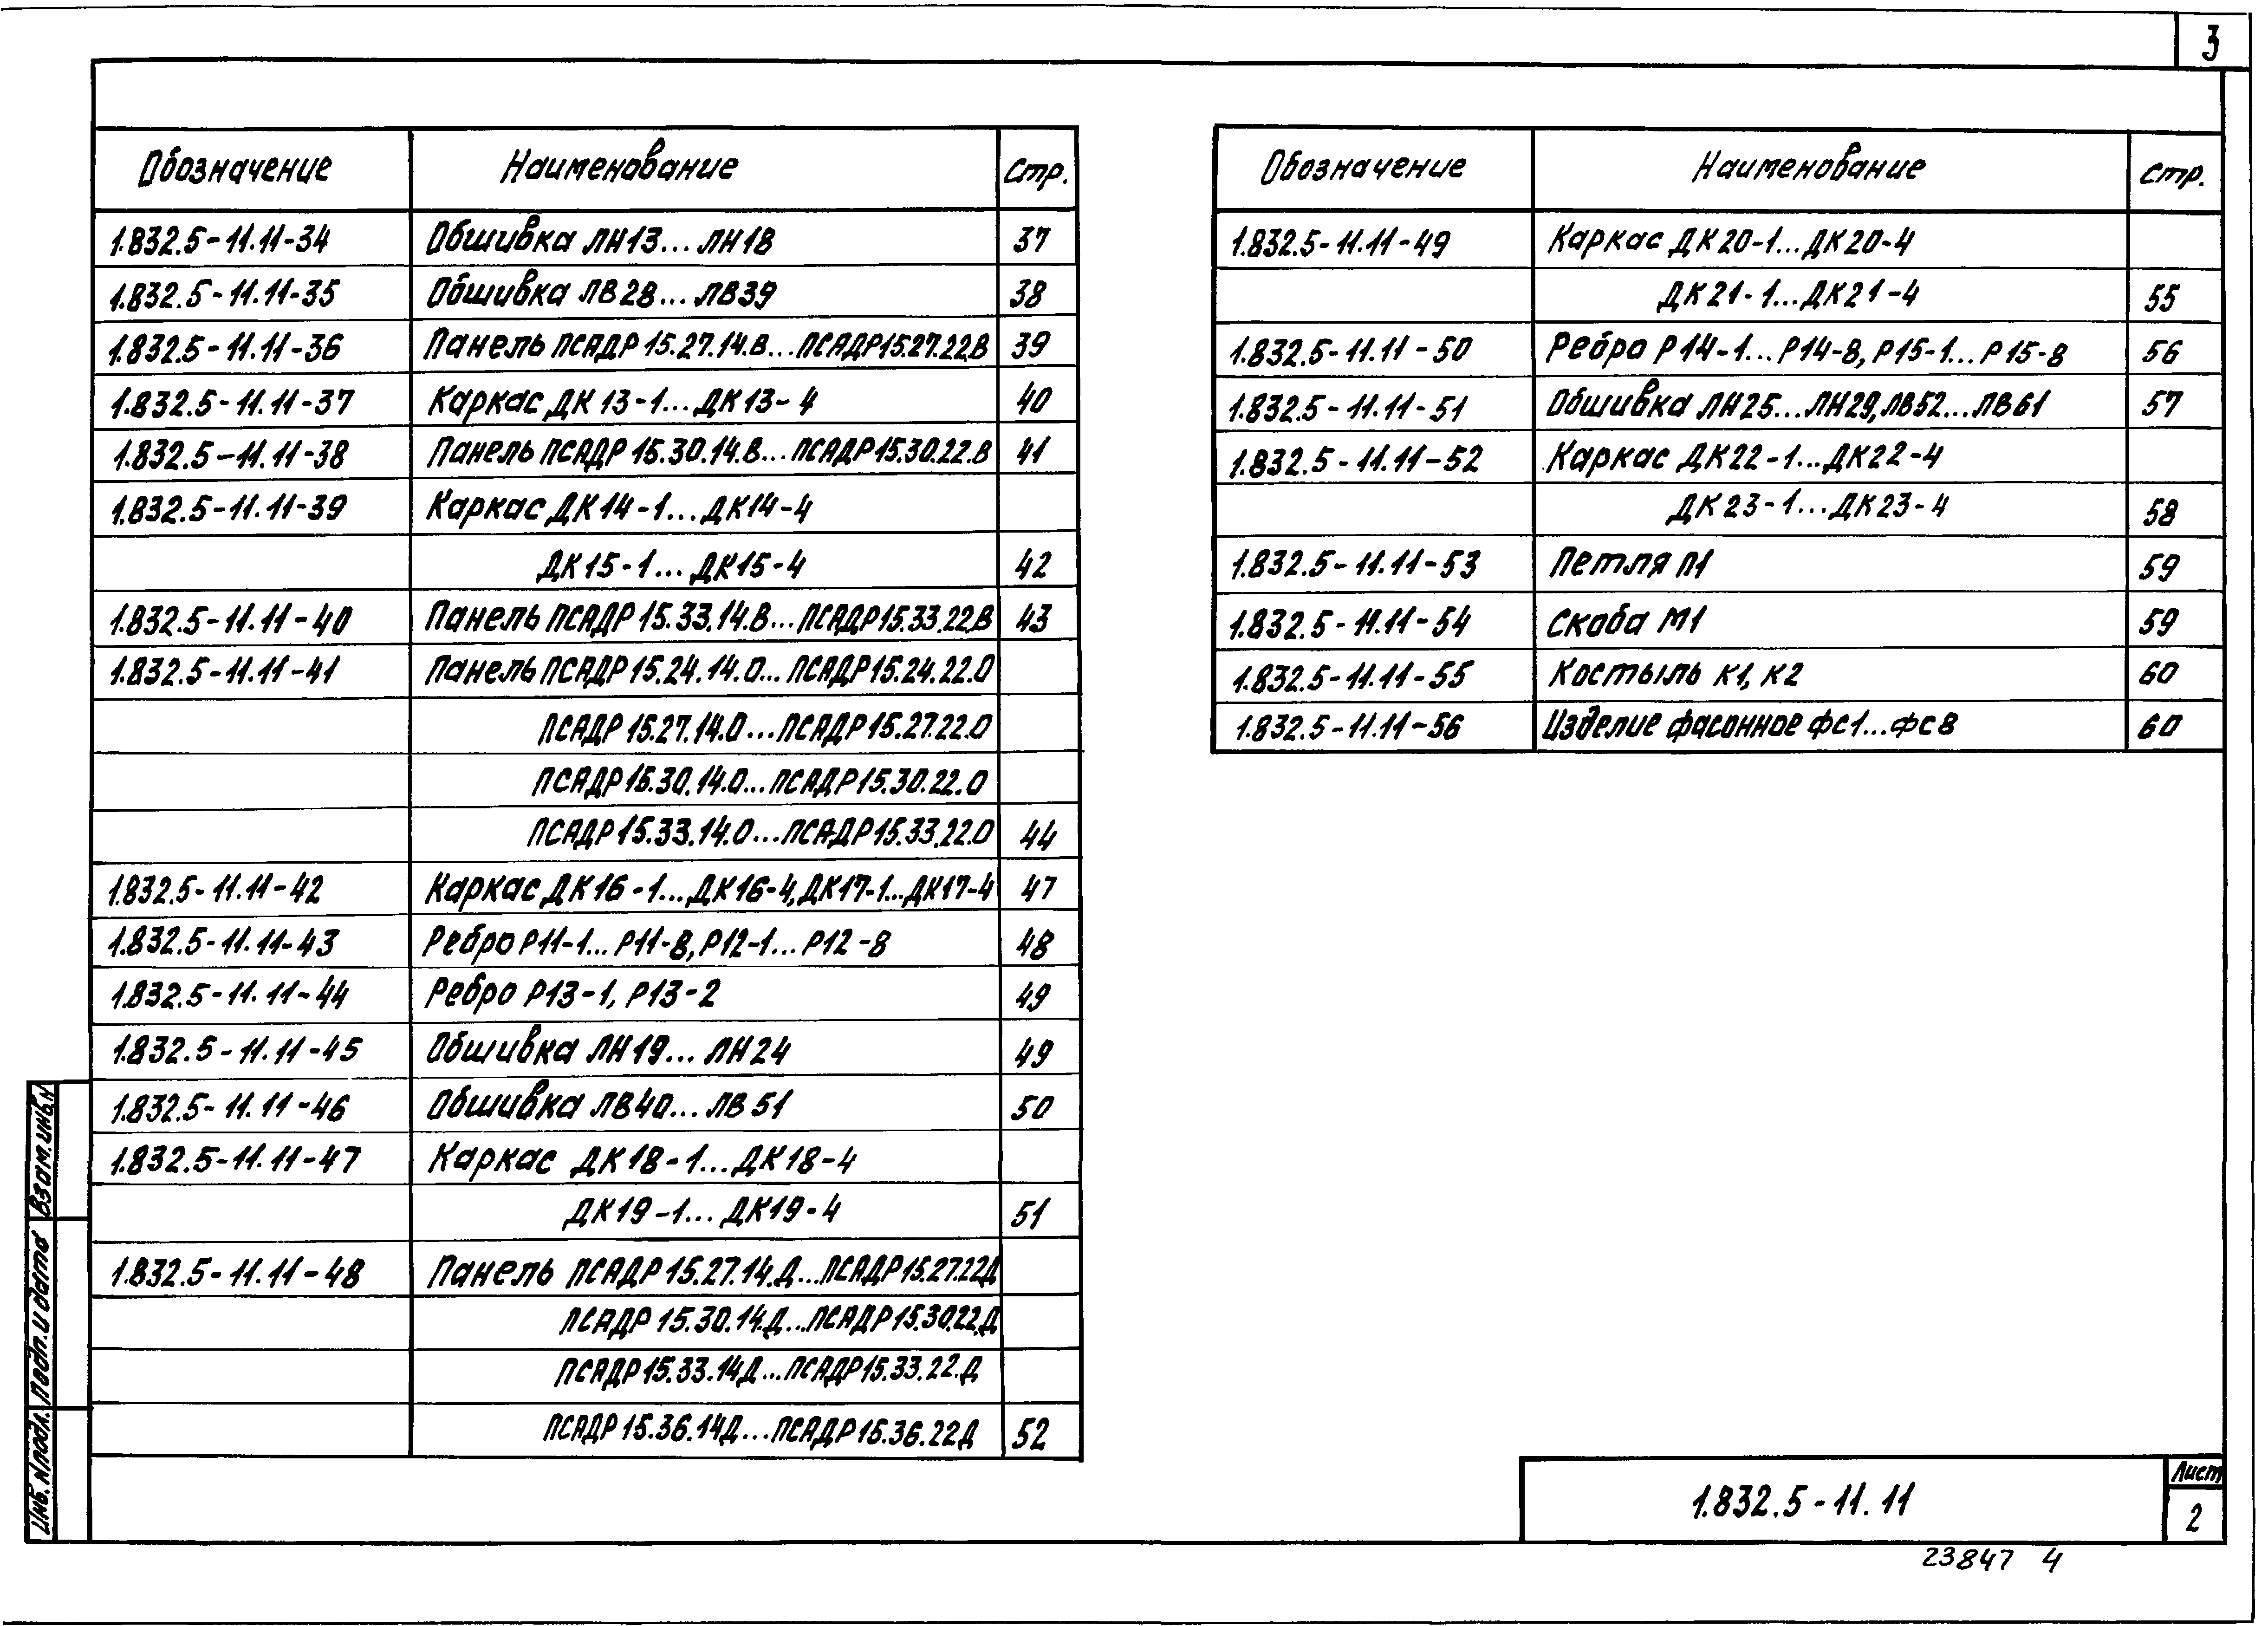 3
Обозначение Наименование Стр.
1.832.5-11.11-34 Обшивка ЛН13...ЛН18 37
1.832.5-11.11-35 Обшивка ЛВ28...ЛВ39 38
1.832.5-11.11-36 Панель ПСАДР 15.27.14.В...ПСАДР15.27.22.В 39
1.832.5-11.11-37 Каркас ДК 13-1...ДК13-4 40
1.832.5-11.11-38 Панель ПСАДР 15.30.14.В...ПСАДР15.30.22.В 41
1.832.5-11.11-39 Каркас ДК14-1...ДК14-4
ДК15-1...ДК15-4 42
1.832.5-11.11-40 Панель ПСАДР 15.33.14.В...ПСАДР15.33.22.В 43
1.832.5-11.11-41 Панель ПСАДР 15.24.14.О...ПСАДР15.24.22.О
ПСАДР 15.27.14.О...ПСАДР15.27.22.О
ПСАДР15.30.14.О...ПСАДР15.30.22.О
ПСАДР15.33.14.О...ПСАДР15.33.22.О 44
1.832.5-11.11-42 Каркас ДК16-1...ДК16-4,ДК17-1...ДК17-4 47
1.832.5-11.11-43 Ребро Р11-1...Р11-8,Р12-1...Р12-8 48
1.832.5-11.11-44 Ребро Р13-1, Р13-2 49
1.832.5-11.11-45 Обшивка ЛН19...ЛН24 49
1.832.5-11.11-46 Обшивка ЛВ40...ЛВ51 50
1.832.5-11.11-47 Каркас ДК18-1...ДК18-4
ДК19-1...ДК19-4 51
1.832.5-11.11-48 Панель ПСАДР15.27.14.Д...ПСАДР15.27.22Д
ПСАДР 15.30.14.Д...ПСАДР15.30.22.Д
ПСАДР15.33.14Д...ПСАДР15.33.22.Д
ПСАДР15.36.14Д...ПСАДР15.36.22Д 52
Обозначение Наименование Стр.
1.832.5-11.11-49 Каркас ДК20-1...ДК20-4
ДК21-1...ДК21-4 55
1.832.5-11.11-50 Ребро Р14-1...Р14-8,Р15-1...Р15-8 56
1.832.5-11.11-51 Обшивка ЛН25...ЛН29,ЛВ52...ЛВ61 57
1.832.5-11.11-52 Каркас ДК22-1...ДК22-4
ДК23-1...ДК23-4 58
1.832.5-11.11-53 Петля П1 59
1.832.5-11.11-54 Скоба М1 59
1.832.5-11.11-55 Костыль К1, К2 60
1.832.5-11.11-56 Изделие фасонное ФС1...ФС8 60
Взам.инв.N
Подп.и дата
Инв.Nподл.
1.832.5-11.11
Лист
2
23847 4